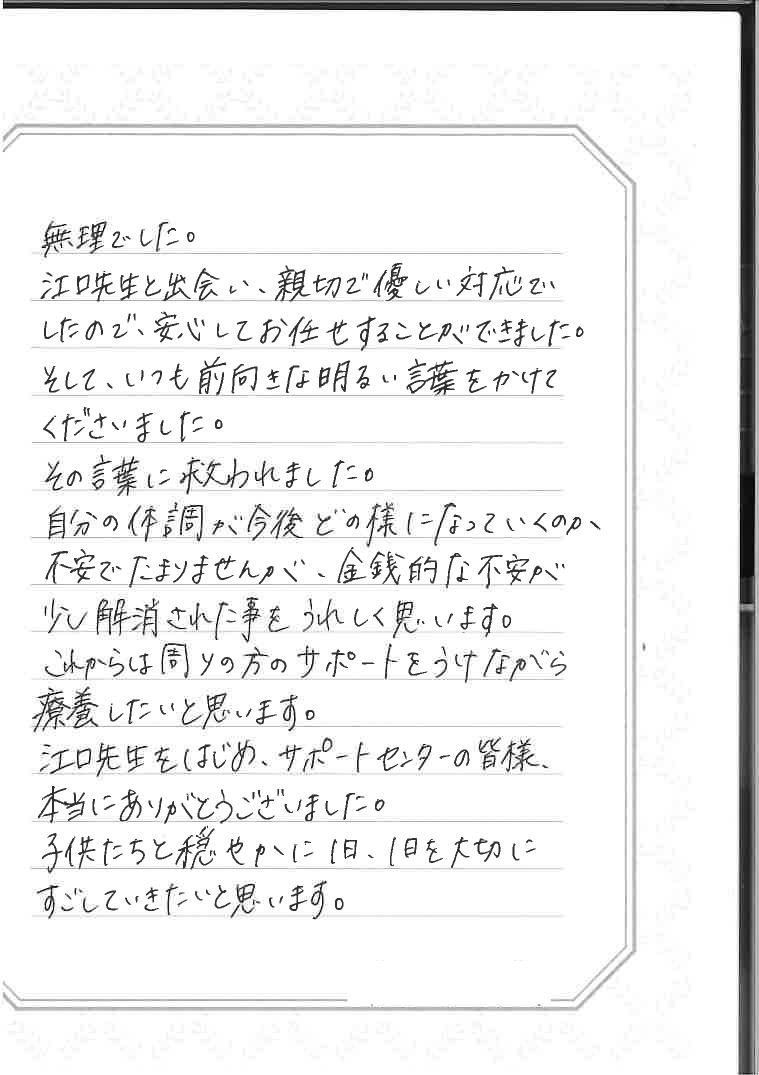 無理でした。
江口先生と出会い、親切で優しい対応で
したので、安心してお任せすることができました。
そして、いつも前向きな明るい言葉をかけて
くださいました。
その言葉に救われました。
自分の体調が今後どの様になっていくのか、
不安でたまりませんが、金銭的な不安が
少し解消された事をうれしく思います。
これからは周りの方のサポートをうけながら
療養したいと思います。
江口先生をはじめ、サポートセンターの皆様、
本当にありがとうございました。
子供たちと穏やかに1日、1日を大切に
すごしていきたいと思います。